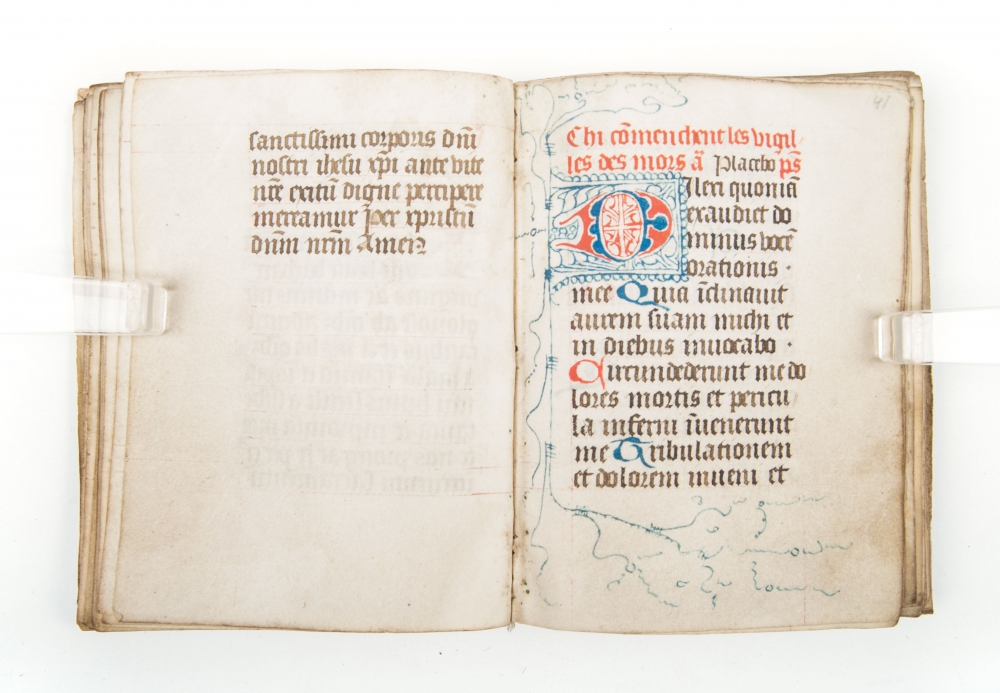 sanctissimi corporis dn̄i
nostri ihesu xp̄i ante vite
nr̄e exitū digne percipere
mereamur Per xpristū
dn̄m nrm̄ Amen
41
Chi cōmenchent les vigil
les des mors ā Placebo ps̄
Dilexi quoniā
exaudiet do
minus vocē
orationis ·
mee Quia īclinauit
aurem suam michi et
in diebus inuocabo ·
Circundederunt me do
lores mortis et pericu
la inferni īuenerunt
me Tribulationem
et dolorem inueni et